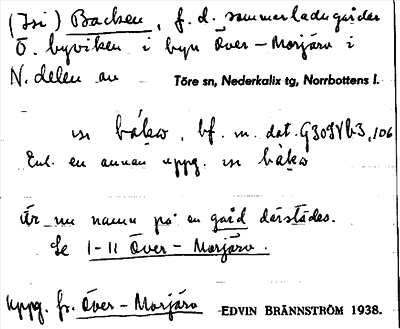 (Isi) Backen, f. d. sommarladugårdar
Ö. byviken i byn Över-Morjärv i
N. delen av Töre sn, Nederkalix tg, Norrbottens l.
bf. m. dat.
Enl. en annan uppg.
Är nu namn på en gård därstädes.
Se 1-11 Över-Morjärv.
Uppg. fr. Över-Morjärv EDVIN BRÄNNSTRÖM 1938.